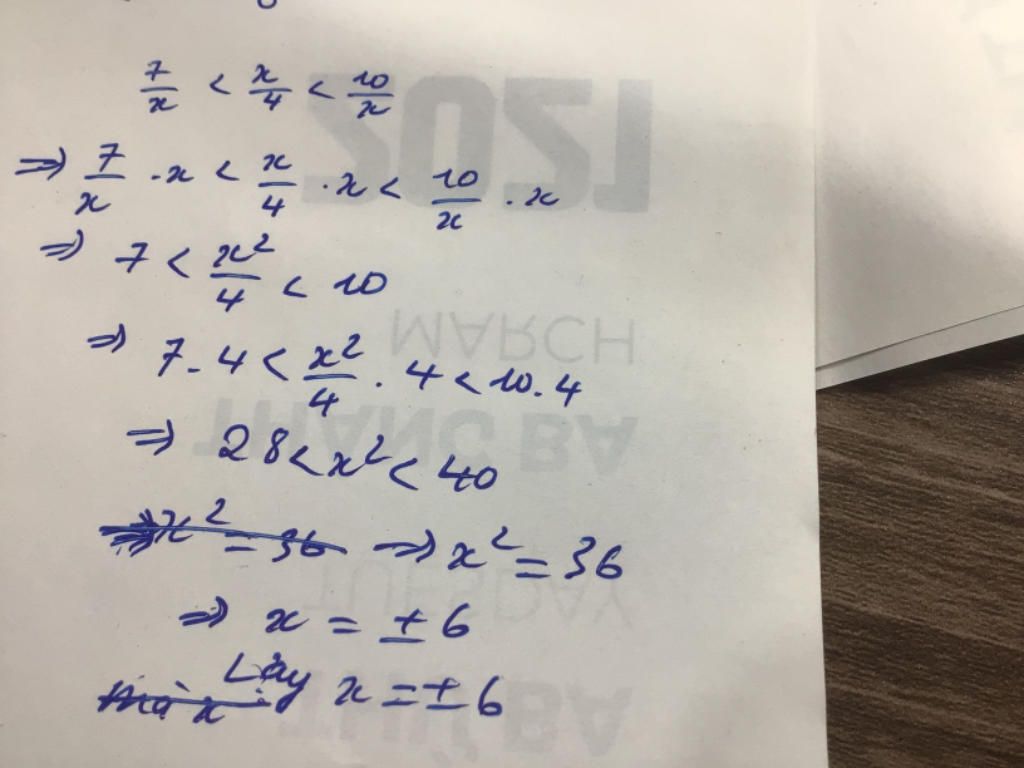 7/x < x/4 < 10/x
⇒ 7/x . x < x/4 . x < 10/x . x
⇒ 7 < x²/4 < 10
⇒ 7 . 4 < x²/4 . 4 < 10 . 4
⇒ 28 < x² < 40
⇒ x² = 36 ⇒ x² = 36
⇒ x = ± 6
mà x Lấy x = ± 6
2021
MARCH
THÁNG BA
TUESDAY
THỨ BA